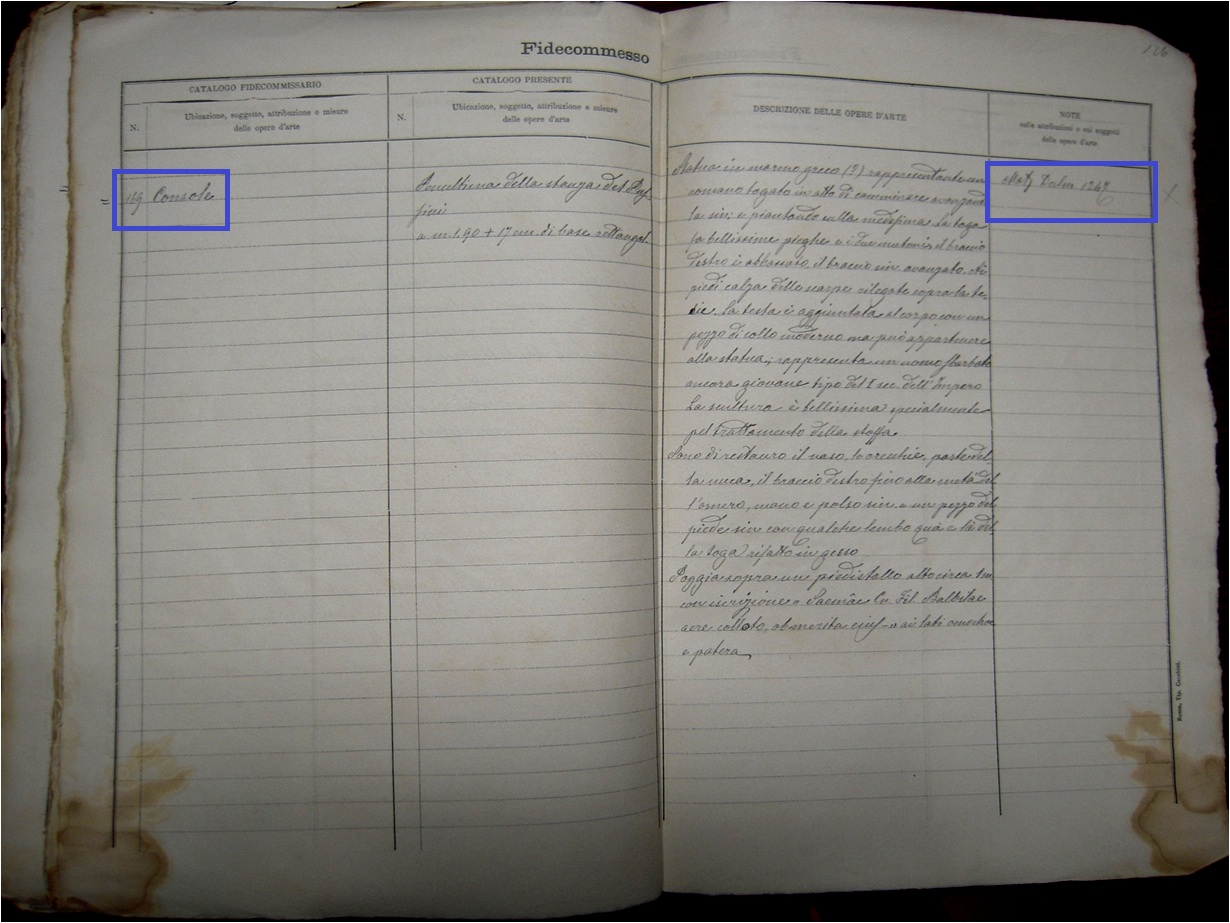 Fidecommesso
126
CATALOGO FIDECOMMISSARIO
CATALOGO PRESENTE
DESCRIZIONE DELLE OPERE D'ARTE
NOTE
sulle attribuzioni e sui soggetti
delle opere d'arte
N.
Ubicazione, soggetto, attribuzione e misure
delle opere d'arte
N.
Ubicazione, soggetto, attribuzione e misure
delle opere d'arte
" 119 Console
Penultima della stanza del
fini
a m. 1.90 + 17 cm. di base rettangol.
Statua in marmo greco (?) rappresentante un
romano togato in atto di camminare avanzand
la sin; e piantando sulla medesima. La toga
fa bellissime pieghe, il braccio
destro è abbassato, il braccio sin. avanzato. Ai
piedi calza delle scarpe rilegate sopra la te-
La testa è aggiuntata al corpo con un
pezzo di collo moderno ma può appartenere
alla statua; rappresenta un uomo sbarbato
ancora giovane tipo del I sec. dell'Impero
La scultura è bellissima specialmente
pel trattamento della stoffa.
Sono di restauro il naso, le orecchie, parte del
la nuca, il braccio destro fino alla metà del
l'omero, mano e polso sin. e un pezzo del
piede sin con qualche lembo quà e là del
la toga rifatto in gesso
Poggia sopra un piedistallo alto circa 1 m
con iscrizione Cn. Fil. Balbilae
aere collato, ob merita eius ai lati
e patera
Matz Duhn 1247
X
Roma, Tip. Cecchini.